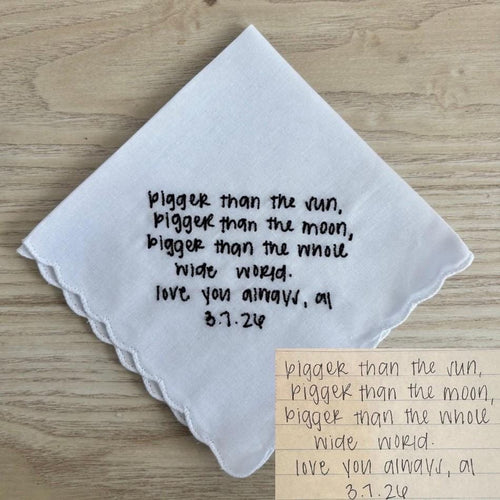 bigger than the sun,
bigger than the moon,
bigger than the whole
wide world.
love you always, al
3.7.26
bigger than the sun,
bigger than the moon,
bigger than the whole
wide world.
love you always, al
3.7.26